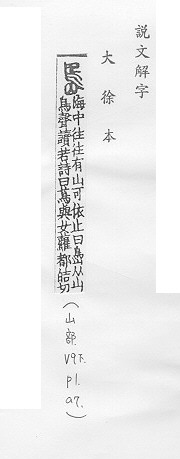 説文解字
大徐本
㠀
海中往往有山可依止曰㠀从山
鳥聲讀若詩曰蔦與女蘿都皓切
(山部. V9下. p1. a7.)